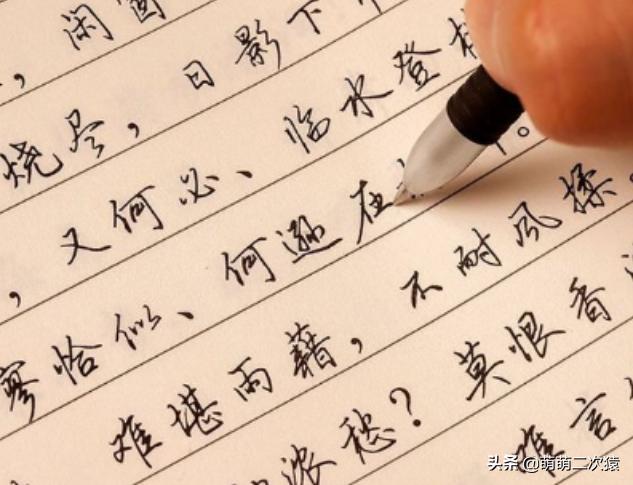 ，闲窗
烧尽，日影下
，又何必、临水登
寥恰似、何逊在 。
难堪雨藉，不耐风揉
浓愁？莫恨香
难言
头条 @萌萌二次猿